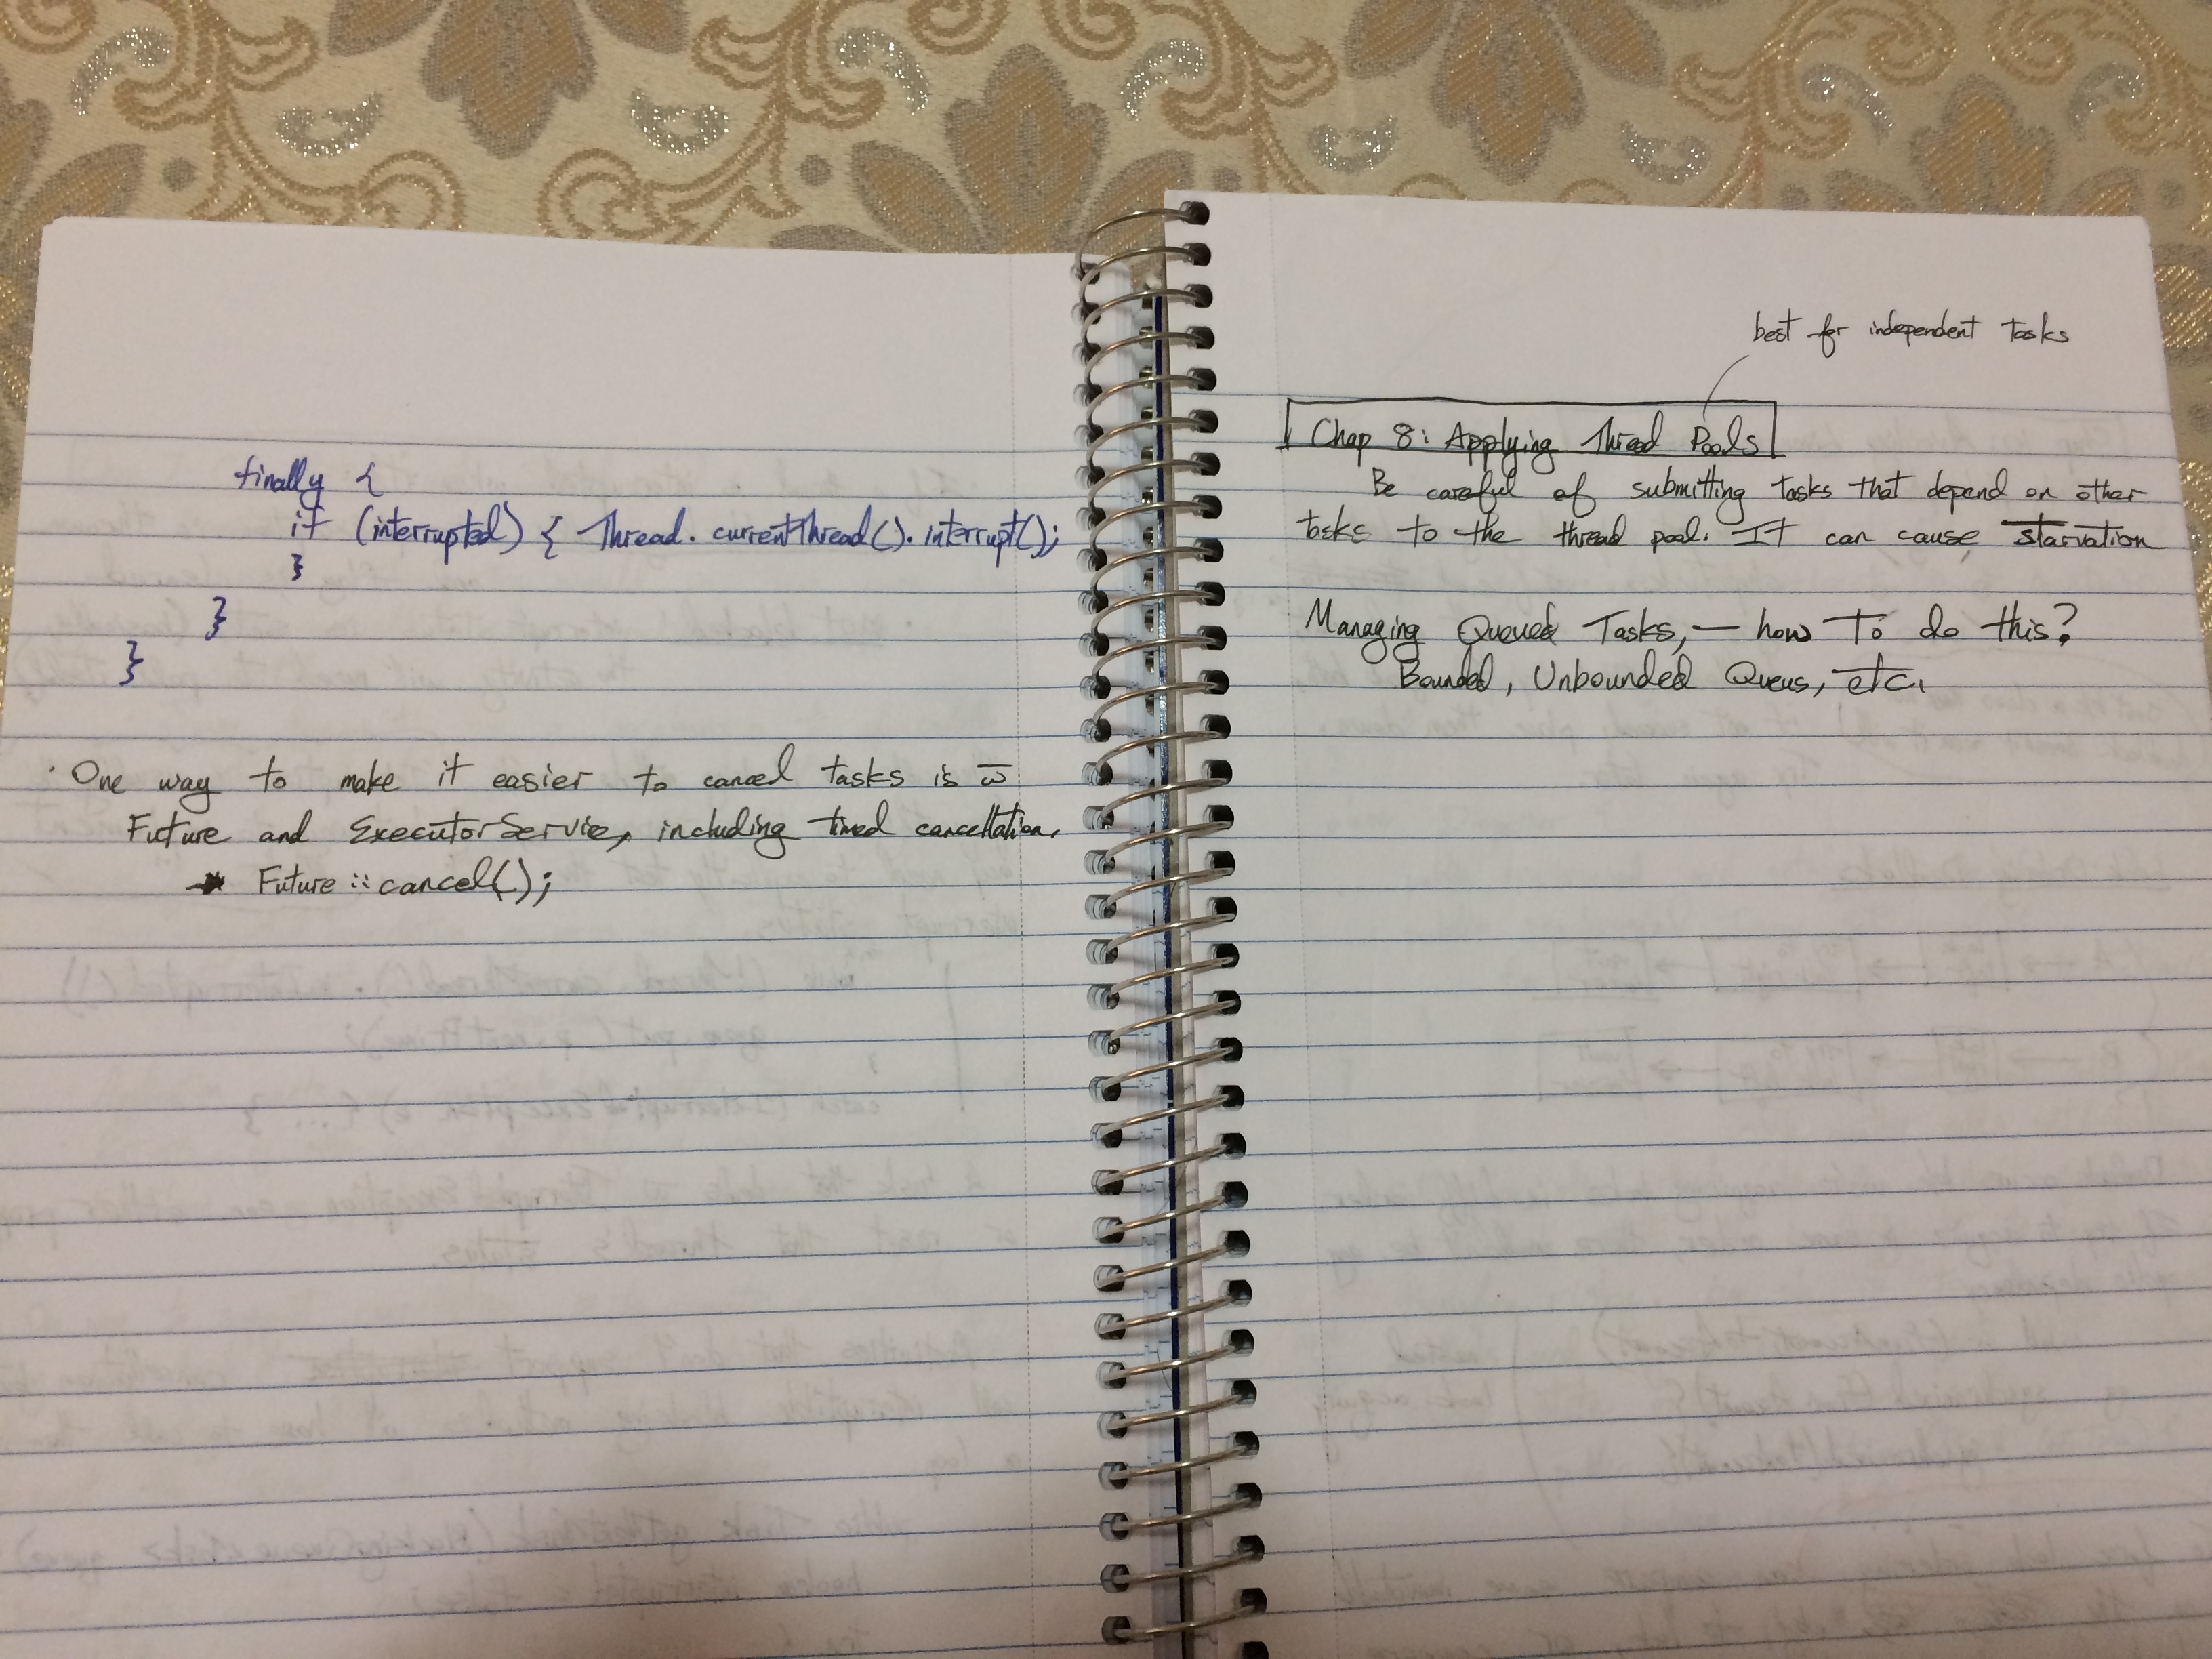 finally {
if (interrupted) { Thread.currentThread().interrupt();
}
}
}
· One way to make it easier to cancel tasks is w̄
Future and ExecutorService, including timed cancellation.
→ Future::cancel(.);
best for independent tasks
Chap 8: Applying Thread Pools
Be careful of submitting tasks that depend on other
tasks to the thread pool. It can cause starvation
Managing Queued Tasks, — how to do this?
Bounded, Unbounded Queus, etc..